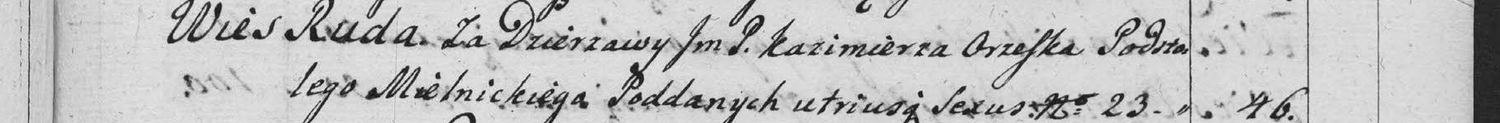 Wies Ruda. Za Dzierzawy Jm P. Kazimierza Orzeſka Podsto.
lego Mielnickiego Poddanych utriusq Sexus. No 23. " . 46.